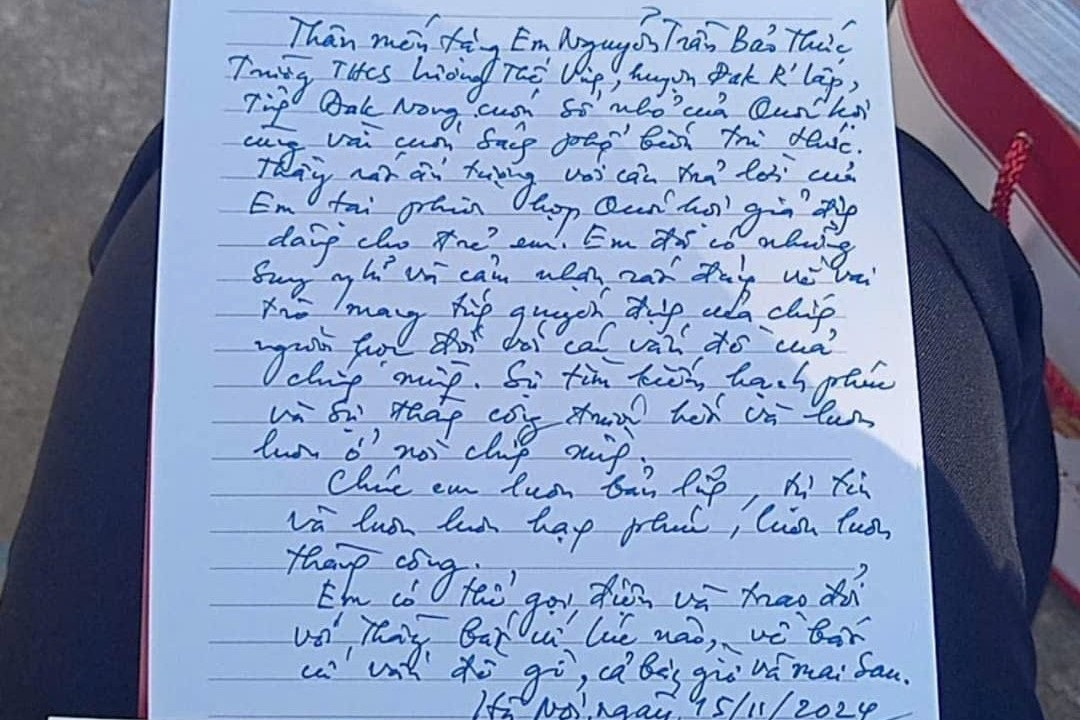 Thân mến tặng Em Nguyễn Trần Bảo Thức
Trường THCS Lương Thế Vinh, huyện Đak R'lấp,
Tỉnh Đak Nông cuốn sổ nhỏ của Quốc hội
cùng vài cuốn sách phổ biến tri thức.
Thầy rất ấn tượng với câu trả lời của
Em tại phiên họp Quốc hội giả định
dành cho trẻ em. Em đã có những
suy nghĩ và cảm nhận rất đúng về vai
trò mang tính quyết định của chính
người học đối với các vấn đề của
chính mình. Sự tìm kiếm hạnh phúc
và sự thành công trước hết và luôn
luôn ở nơi chính mình.
Chúc em luôn bản lĩnh, tự tin
và luôn luôn hạnh phúc, luôn luôn
thành công.
Em có thể gọi điện và trao đổi
với Thầy bất cứ lúc nào, về bất
cứ vấn đề gì, cả bây giờ và mai sau.
Hà Nội, ngày 15/11/2024